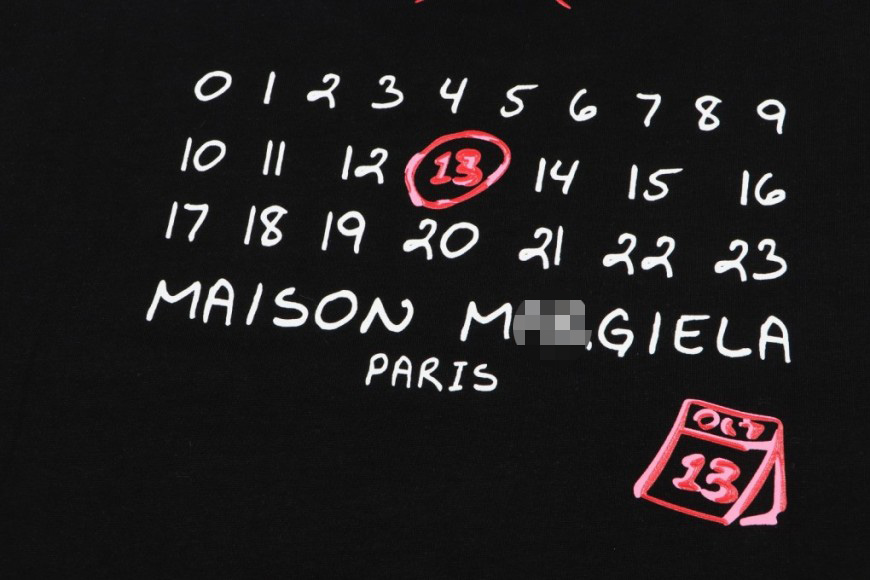 0 1 2 3 4 5 6 7 8 9
10 11 12 13 14 15 16
17 18 19 20 21 22 23
MAISON
PARIS
OCT
13